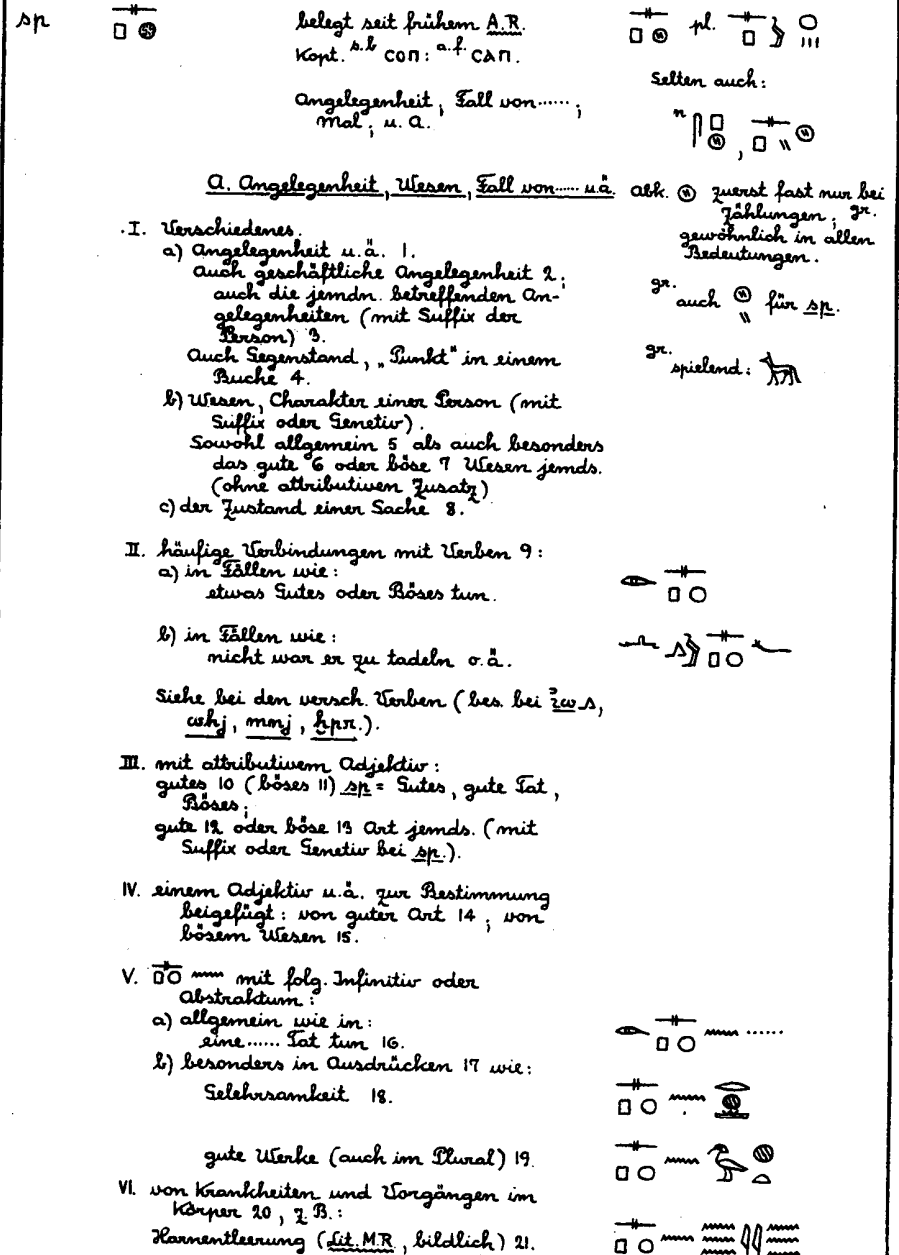 sp
belegt seit frühem A.R.
Kopt. s.b ⲥⲟⲡ : a.f. ⲥⲁⲡ.
pl.
Angelegenheit, Fall von......;
Mal; u. a.
Selten auch:
n
,
A. Angelegenheit, Wesen, Fall von...... u.ä.
Abk. zuerst fast nur bei
Zählungen; gr.
gewöhnlich in allen
Bedeutungen.
gr.
auch für sp.
gr.
spielend:
I. Verschiedenes.
a) Angelegenheit u.ä. 1.
Auch geschäftliche Angelegenheit 2;
auch die jemdn. betreffenden An-
gelegenheiten (mit Suffix der
Person) 3.
Auch Gegenstand, „Punkt" in einem
Buche 4.
b) Wesen, Charakter einer Person (mit
Suffix oder Genetiv).
Sowohl allgemein 5 als auch besonders
das gute 6 oder böse 7 Wesen jemds.
(ohne attributiven Zusatz)
c) der Zustand einer Sache 8.
II. häufige Verbindungen mit Verben 9:
a) in Fällen wie:
etwas Gutes oder Böses tun.
b) in Fällen wie:
nicht war er zu tadeln o.ä.
Siehe bei den versch. Verben (bes. bei
whj, mnj, ḫpr.).
III. mit attributivem Adjektiv:
gutes 10 (böses 11) sp = Gutes, gute Tat,
Böses;
gute 12 oder böse 13 Art jemds. (mit
Suffix oder Genetiv bei sp.).
IV. einem Adjektiv u.ä. zur Bestimmung
beigefügt: von guter Art 14; von
bösem Wesen 15.
V. 𓊃𓊪 𓈖 mit folg. Infinitiv oder
Abstraktum:
a) allgemein wie in:
eine...... Tat tun 16.
b) besonders in Ausdrücken 17 wie:
Gelehrsamkeit 18.
gute Werke (auch im Plural) 19.
VI. von Krankheiten und Vorgängen im
Körper 20, z.B.:
Harnentleerung (Lit. M.R., bildlich) 21.